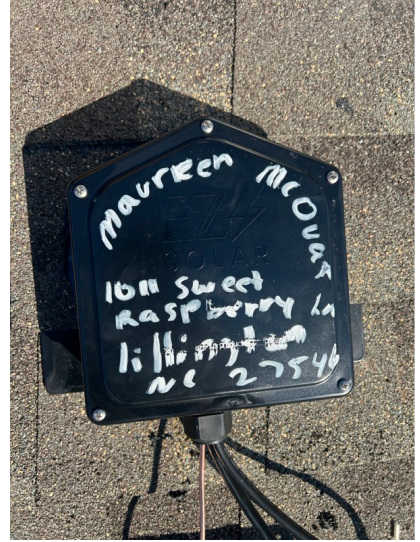 Maureen McOvas
EZ
SOLAR
1011 Sweet
Raspberry Ln
lillington
NC 27546